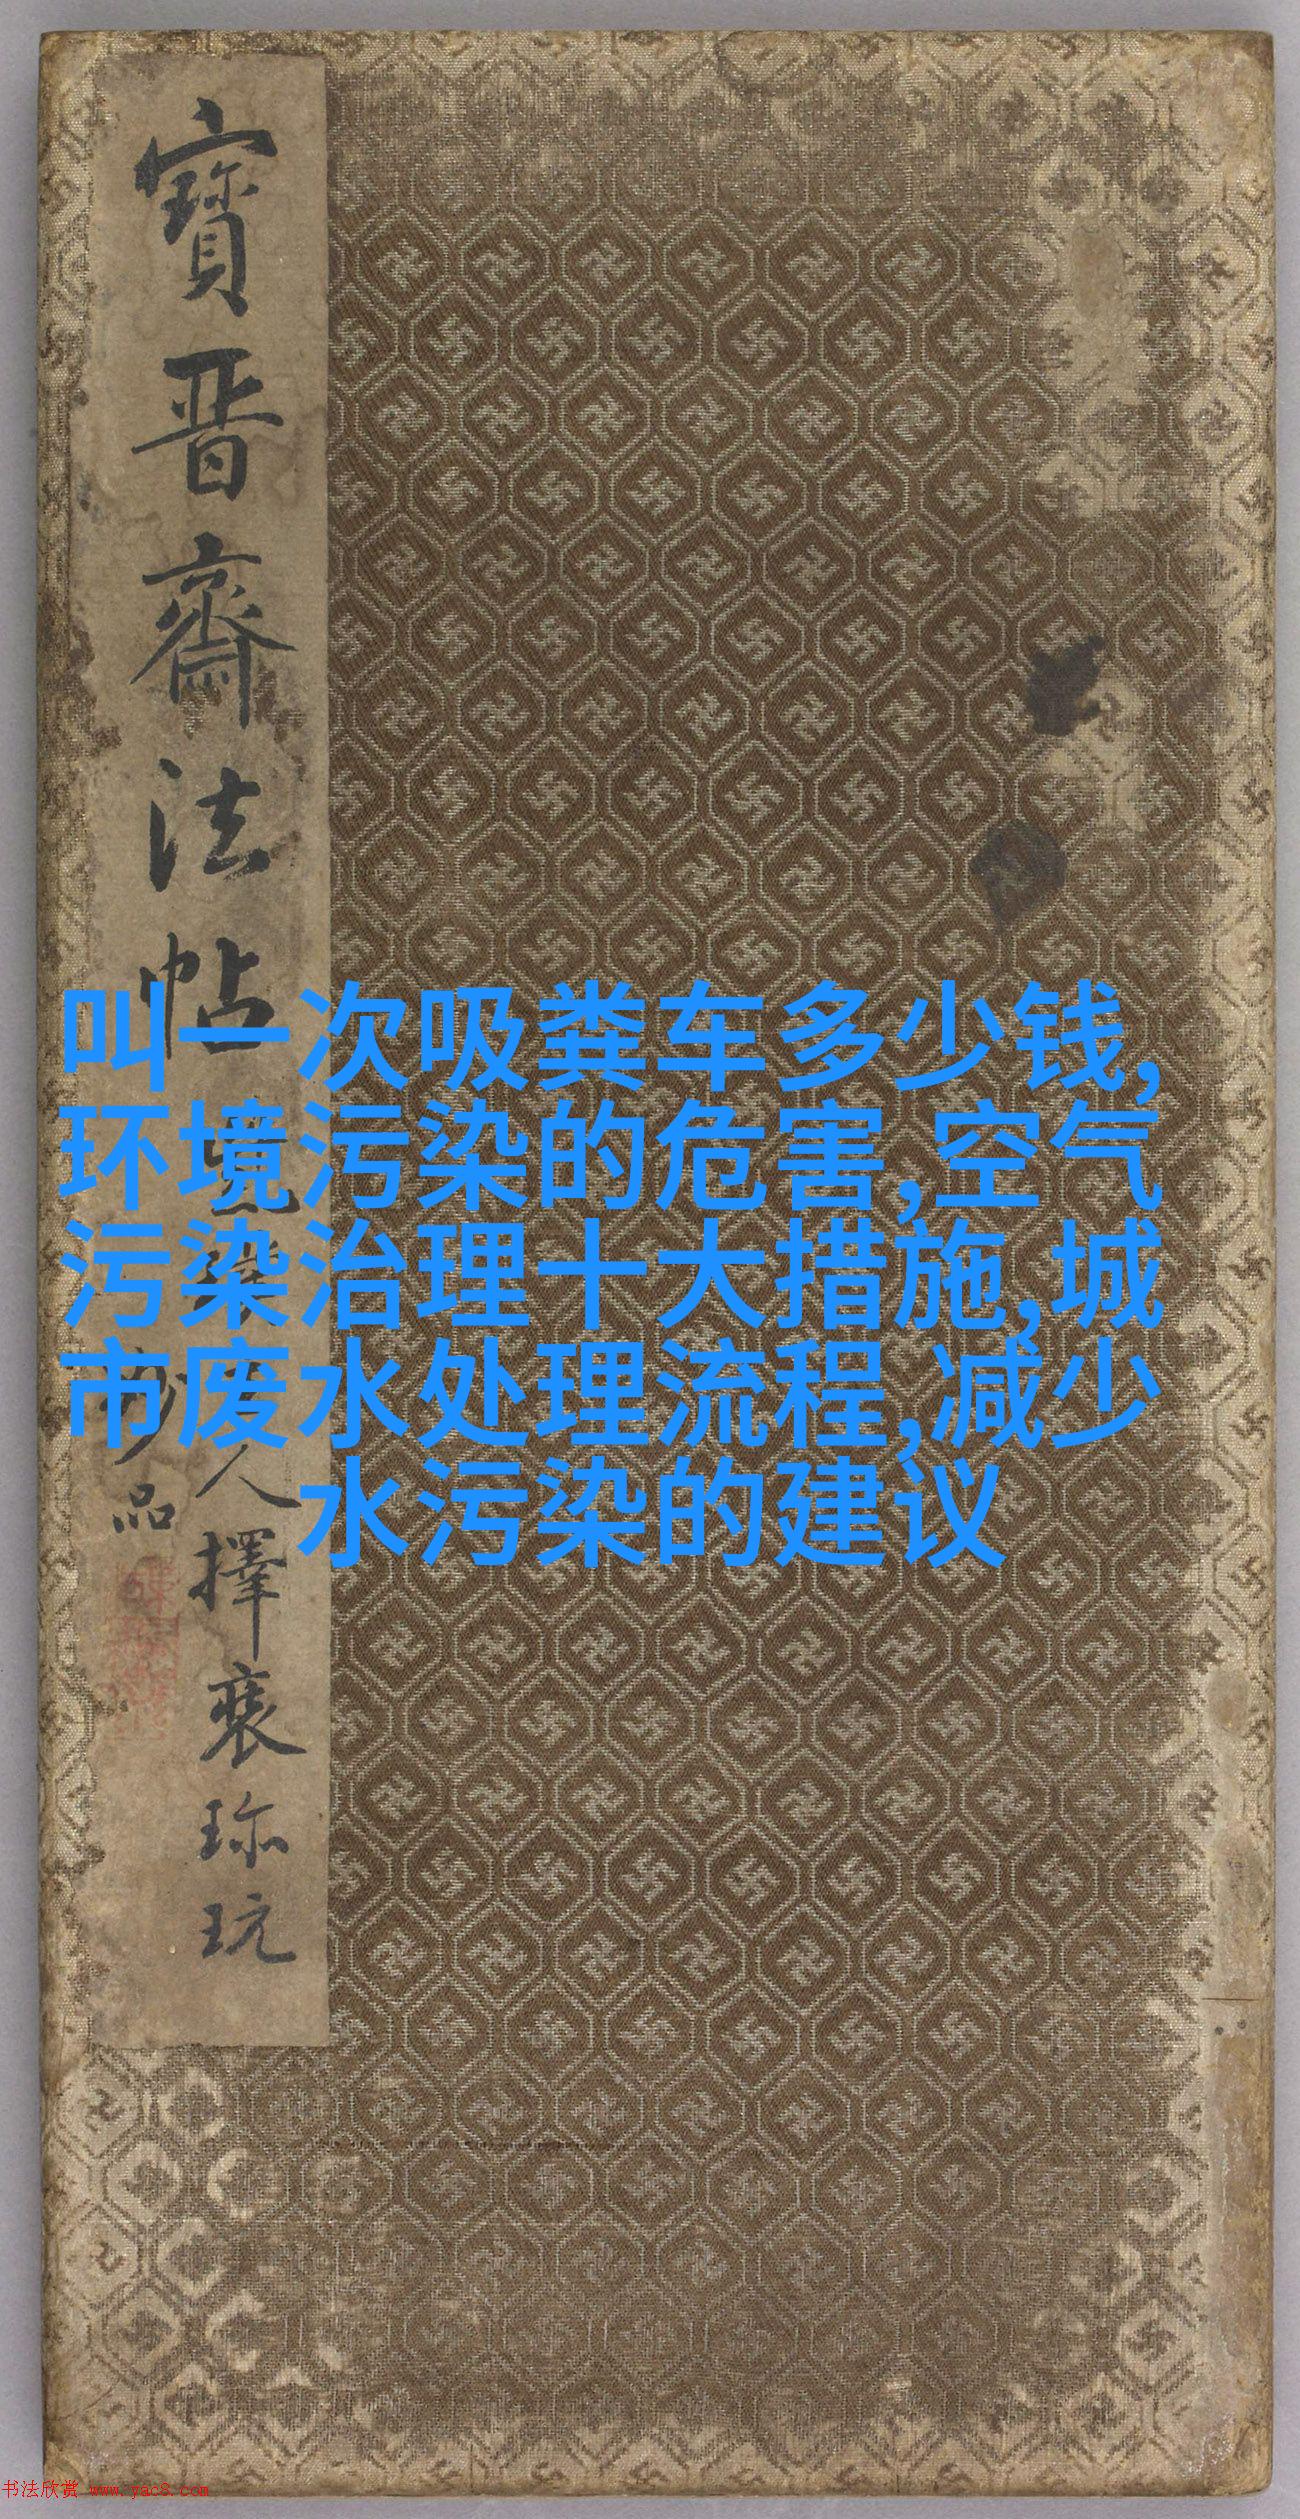 寳晋齋法帖
人擇裘珎玩
品
叫一次吸粪车多少钱,
环境污染的危害,空气
污染治理十大措施,城
市废水处理流程,减少
水污染的建议
书法欣赏 www.yac8.com